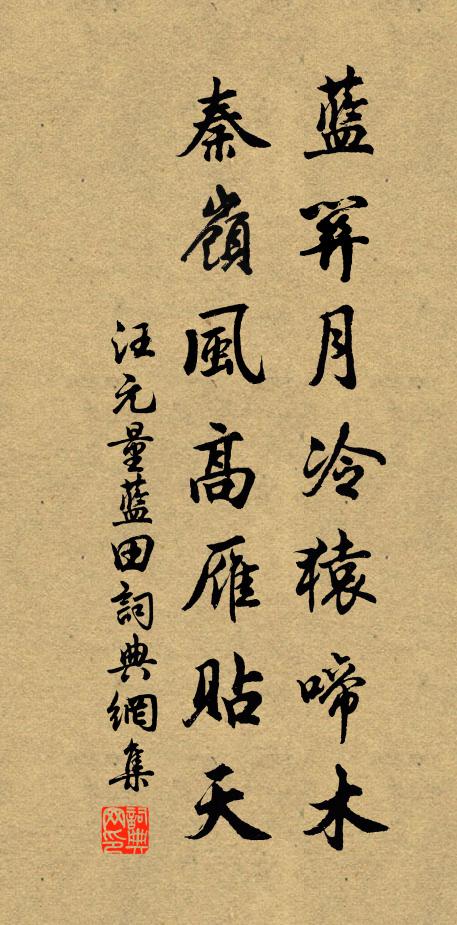 藍關月冷猿啼木
秦嶺風高雁貼天
汪元量藍田詞典網集
詞典網印